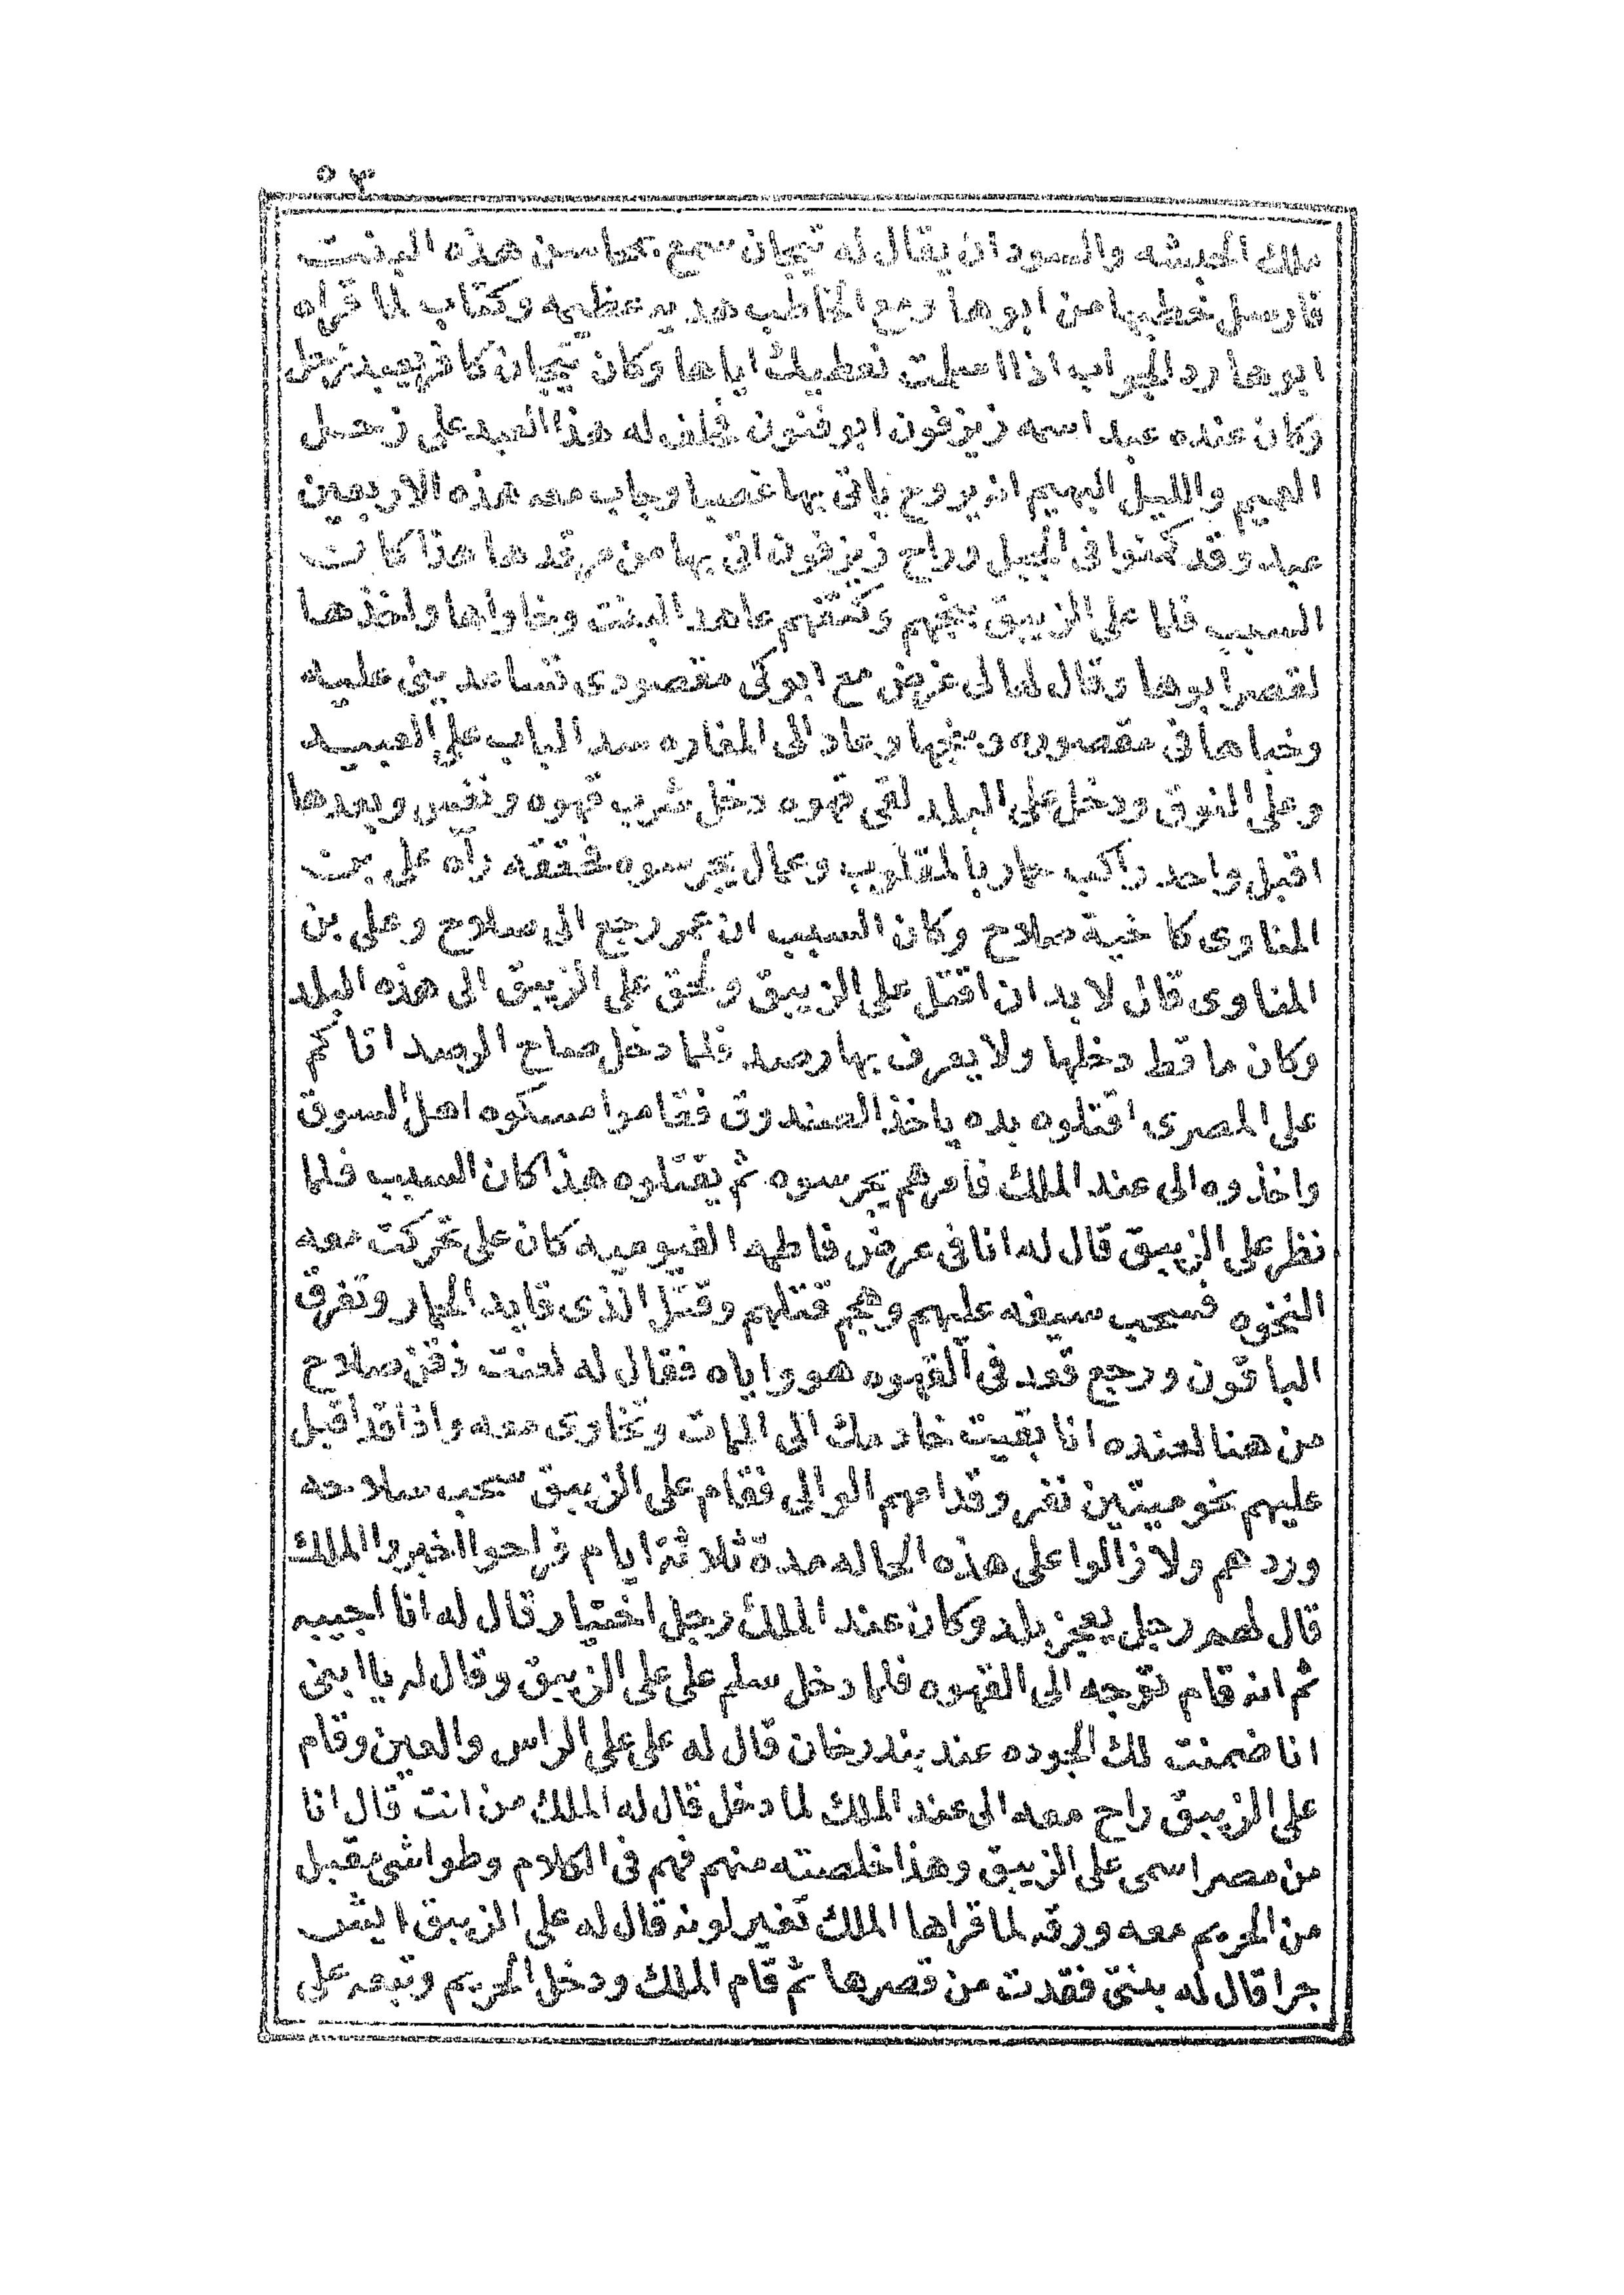 ٥٣
ملك الحبشه والسودان يقال له تيجان سمع بمحاسن هذه البنت
فارسل خطبها من ابوها ومع الخاطب هديه عظيمه وكتاب لما قراه
ابوها رد الجواب اذا اسلمت نعطيك اياها وكان تيجان كافر يعبد زحل
وكان عنده عبد اسمه زيزفون ابو فنون فحلف له هذا العبد على زحل
الهيم والليل البهيم انه يروح ياتى بها غصبا وجاب معه هذه الاربعين
عبد وقد كمنوا فى الجبل وراح زيزفون اتى بها من مرقدها هذا كانت
السبب فلما على الزيبق بنجهم وكتفهم عاهد البنت وخاواها واخذها
لقصر ابوها وقال لها لى غرض مع ابوكى مقصودى تساعدينى عليه
وخباها فى مقصوره وبنجها وعاد الى المغاره سد الباب على العبيد
وعلى النوق ودخل على البلد لقى قهوه دخل شرب قهوه ونفس وبعدها
اقبل واحد راكب حمار بالمقلوب وعمال يجرسوه فحققه رآه على بن
المناوى كاخية صلاح وكان السبب ان عمر رجع الى صلاح وعلى بن
المناوى قال لا بد ان اقتل على الزيبق ولحق على الزيبق الى هذه البلد
وكان ما قط دخلها ولا يعرف بها رصد فلما دخل صاح الرصد اتاكم
على المصرى اقتلوه بده ياخذ الصندوق فقاموا مسكوه اهل السوق
واخذوه الى عند الملك فامرهم يجرسوه ثم يقتلوه هذا كان السبب فلما
نظر على الزيبق قال له انا فى عرض فاطمه الفيوميه كان على تحركت معه
النخوه فسحب سيفه عليهم وهجم قتلهم وقتل الذى قايد الحمار وتفرق
الباقون ورجع قعد فى القهوه هو واياه فقال له لعنت ذقن صلاح
من هنا لعنده انا بقيت خادمك الى الممات وتخاوى معه واذا قد اقبل
عليهم نحو ميتين نفر وقدامهم الوالى فقام على الزيبق سحب سلاحه
وردهم ولا زالوا على هذه الحاله مدة ثلاثة ايام فراحوا اخبروا الملك
قال لهم رجل يعجز بلد وكان عند الملك رجل اختيار قال له انا اجيبه
ثم انه قام توجه الى القهوه فلما دخل سلم على على الزيبق وقال له يا ابنى
انا ضمنت لك الجوده عند بندرخان قال له على على الراس والعين وقام
على الزيبق راح معه الى عند الملك لما دخل قال له الملك من انت قال انا
من مصر اسمى على الزيبق وهذا خلصته منهم فهم فى الكلام وطواشى مقبل
من الحريم معه ورقه لما قراها الملك تغير لونه قال له على الزيبق ايش
جرا قال له بنتى فقدت من قصرها ثم قام الملك ودخل الحريم وتبعه على